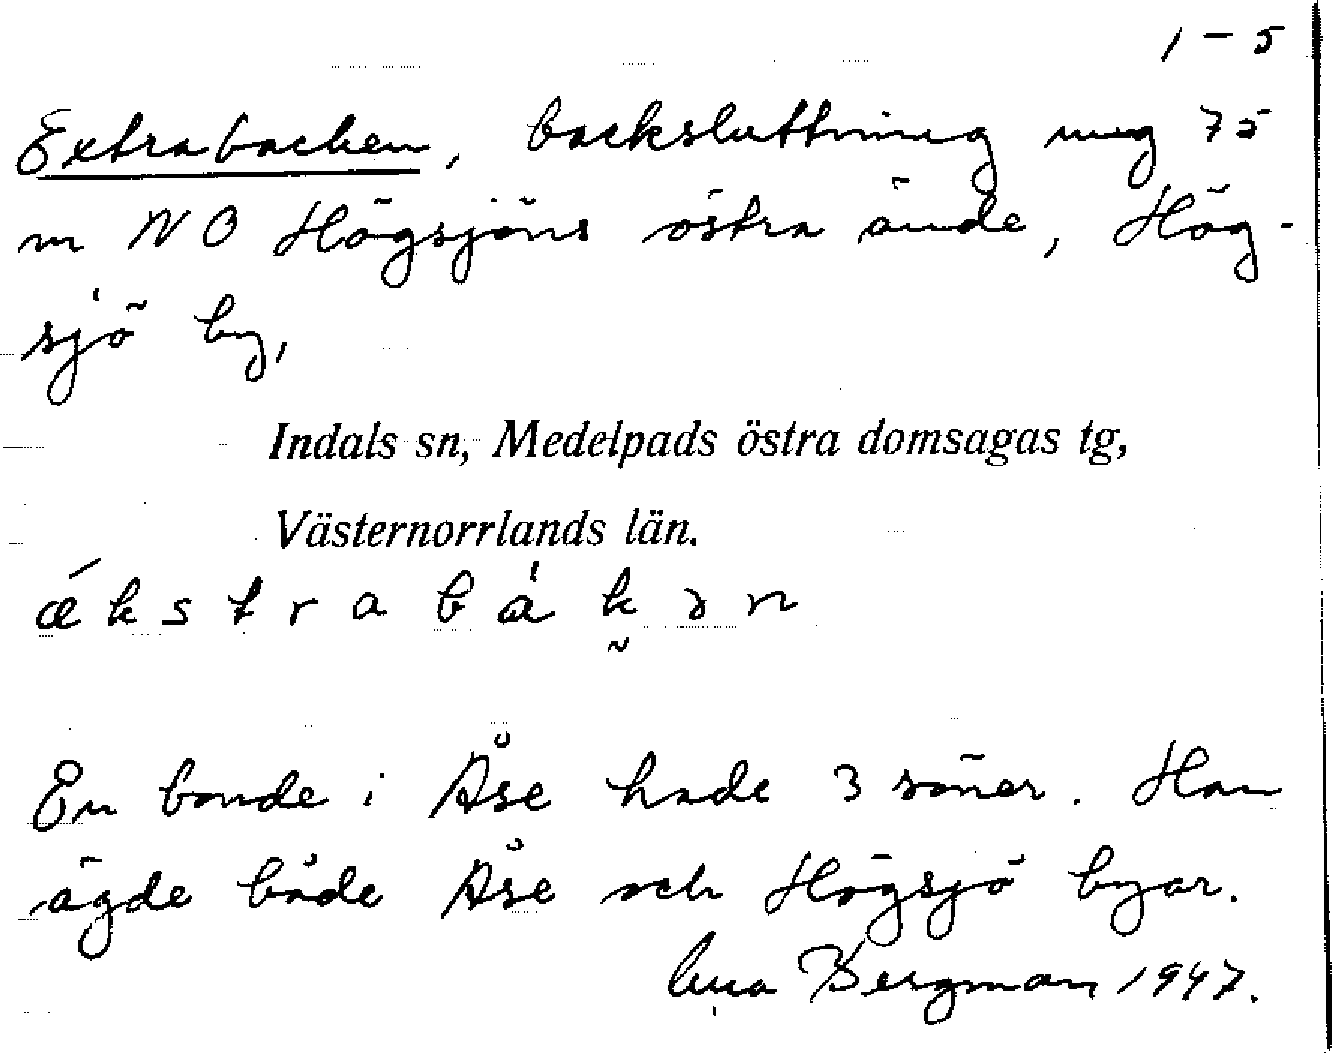 1-5
Extrabacken, backsluttning ung 75
m NO Högsjöns östra ände, Hög-
sjö by,
Indals sn, Medelpads östra domsagas tg,
Västernorrlands län.
ǽkstrabákən
En bonde i Åse hade 3 söner. Han
ägde både Åse och Högsjö byar.
Bergman 1947.